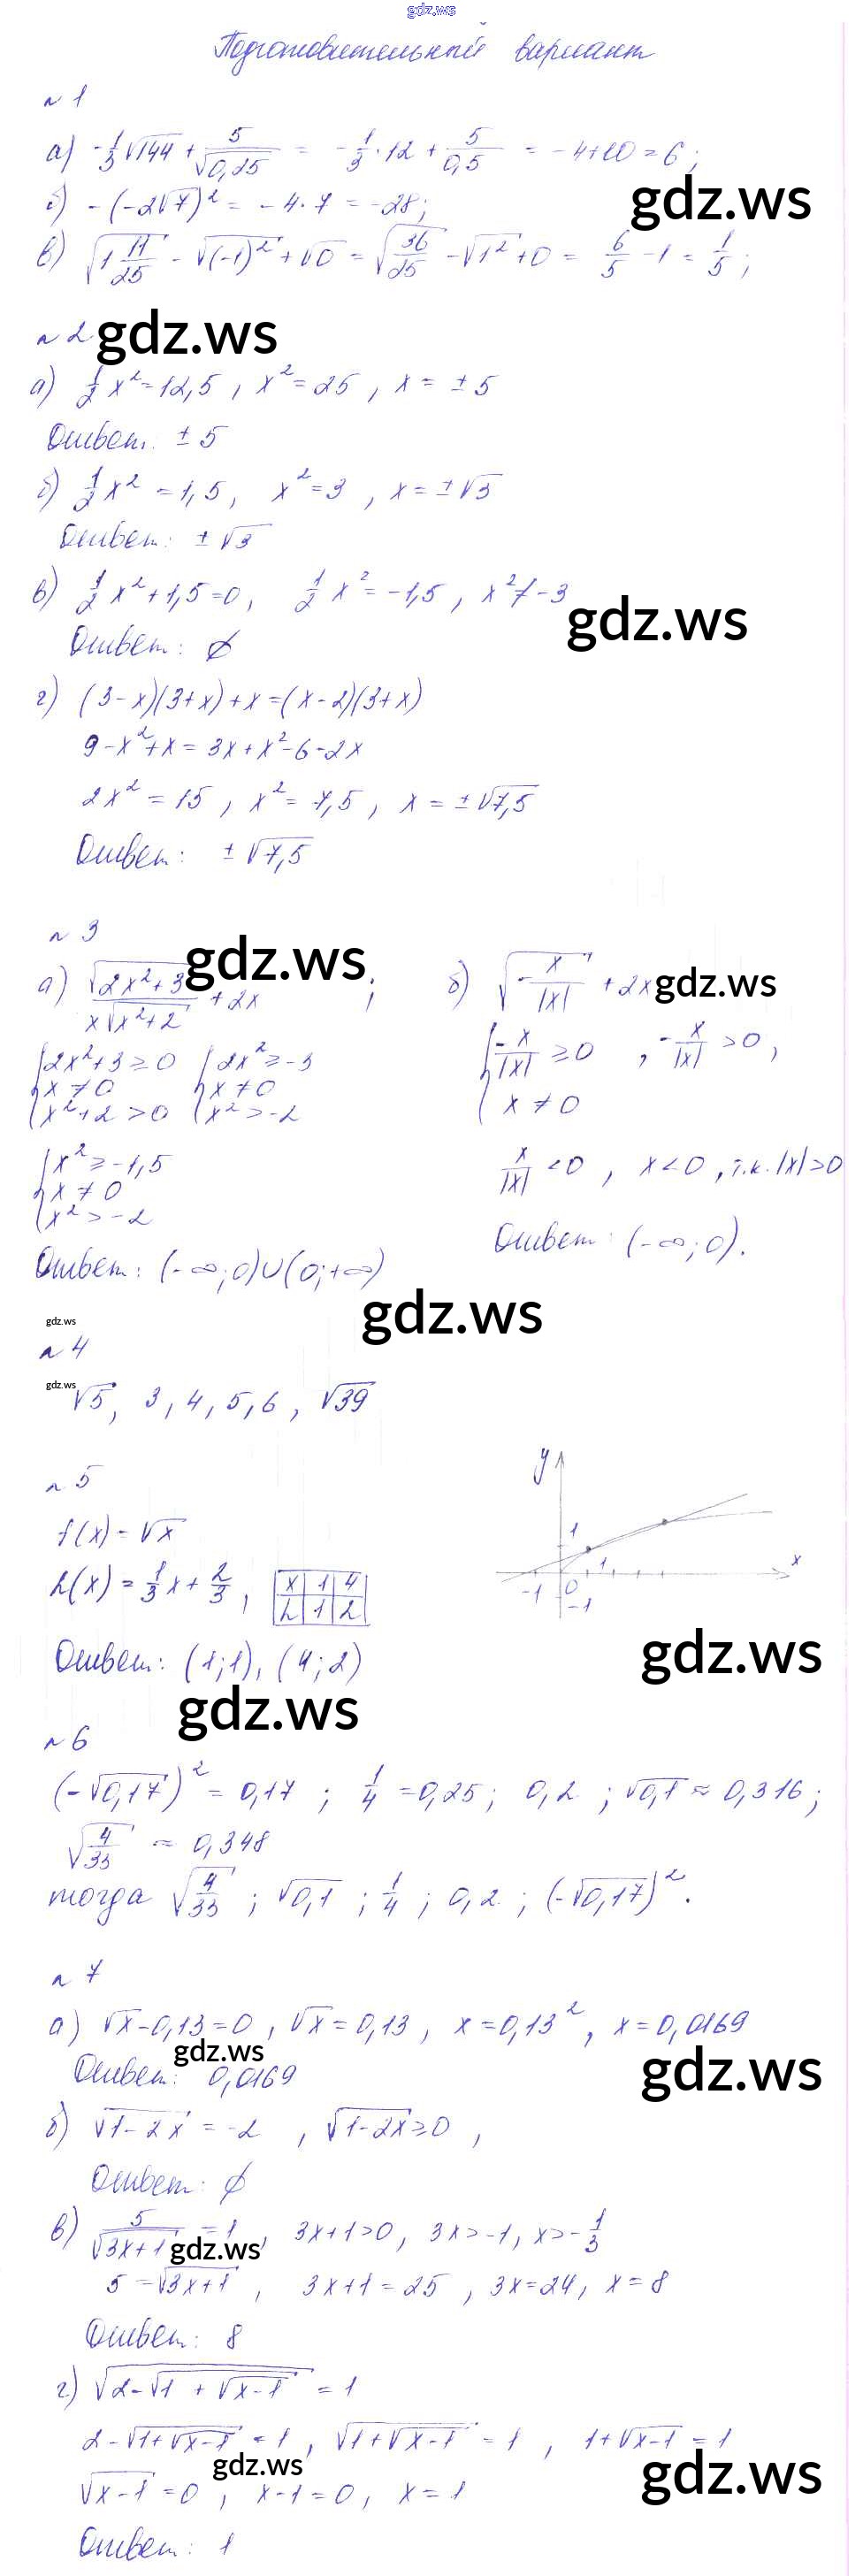 gdz.ws
Подготовительный вариант
№ 1
а) -1/3 √144 + 5/√0,25 = -1/3 · 12 + 5/0,5 = -4+10 = 6;
gdz.ws
б) -(-2√7)² = -4 · 7 = -28;
в) √(1 11/25) - √(-1)² + √0 = √(36/25) - √1² + 0 = 6/5 - 1 = 1/5;
№ 2
gdz.ws
а) 1/2 x² = 12,5, x² = 25, x = ±5
Ответ: ±5
б) 1/2 x² = 1,5, x² = 3, x = ±√3
Ответ: ±√3
в) 1/2 x² + 1,5 = 0, 1/2 x² = -1,5, x² ≠ -3
gdz.ws
Ответ: ∅
г) (3-x)(3+x)+x=(x-2)(3+x)
9-x²+x = 3x+x²-6-2x
2x² = 15, x² = 7,5, x = ±√7,5
Ответ: ±√7,5
№ 3
gdz.ws
а) √(2x²+3)/(x√(x²+2)) + 2x;
{2x²+3 ≥ 0 {2x² ≥ -3
x ≠ 0 x ≠ 0
x²+2 > 0 x² > -2
{x² ≥ -1,5
x ≠ 0
x² > -2
Ответ: (-∞; 0)∪(0; +∞)
б) √(-x/|x|) + 2x
gdz.ws
{-x/|x| ≥ 0, -x/|x| > 0,
x ≠ 0
x/|x| < 0, x < 0, т.к. |x| > 0
Ответ: (-∞; 0).
gdz.ws
gdz.ws
№ 4
gdz.ws
√5, 3, 4, 5, 6, √39
№ 5
f(x) = √x
h(x) = 1/3 x + 2/3,
x 1 4
h 1 2
y
1
x
-1 0 1
-1
Ответ: (1; 1), (4; 2)
gdz.ws
gdz.ws
№ 6
(-√0,17)² = 0,17; 1/4 = 0,25; 0,2; √0,1 ≈ 0,316;
√(4/33) ≈ 0,348
тогда √(4/33); √0,1; 1/4; 0,2; (-√0,17)².
№ 7
а) √x - 0,13 = 0, √x = 0,13, x = 0,13², x = 0,0169
gdz.ws
gdz.ws
Ответ: 0,0169
б) √(1-2x) = -2, √(1-2x) ≥ 0,
Ответ: ∅
в) 5/√(3x+1) = 1, 3x+1 > 0, 3x > -1, x > -1/3
gdz.ws
5 = √(3x+1), 3x+1 = 25, 3x = 24, x = 8
Ответ: 8
г) √(2-√(1+√(x-1))) = 1
2-√(1+√(x-1)) = 1, √(1+√(x-1)) = 1, 1+√(x-1) = 1
gdz.ws
gdz.ws
√(x-1) = 0, x-1 = 0, x = 1
Ответ: 1